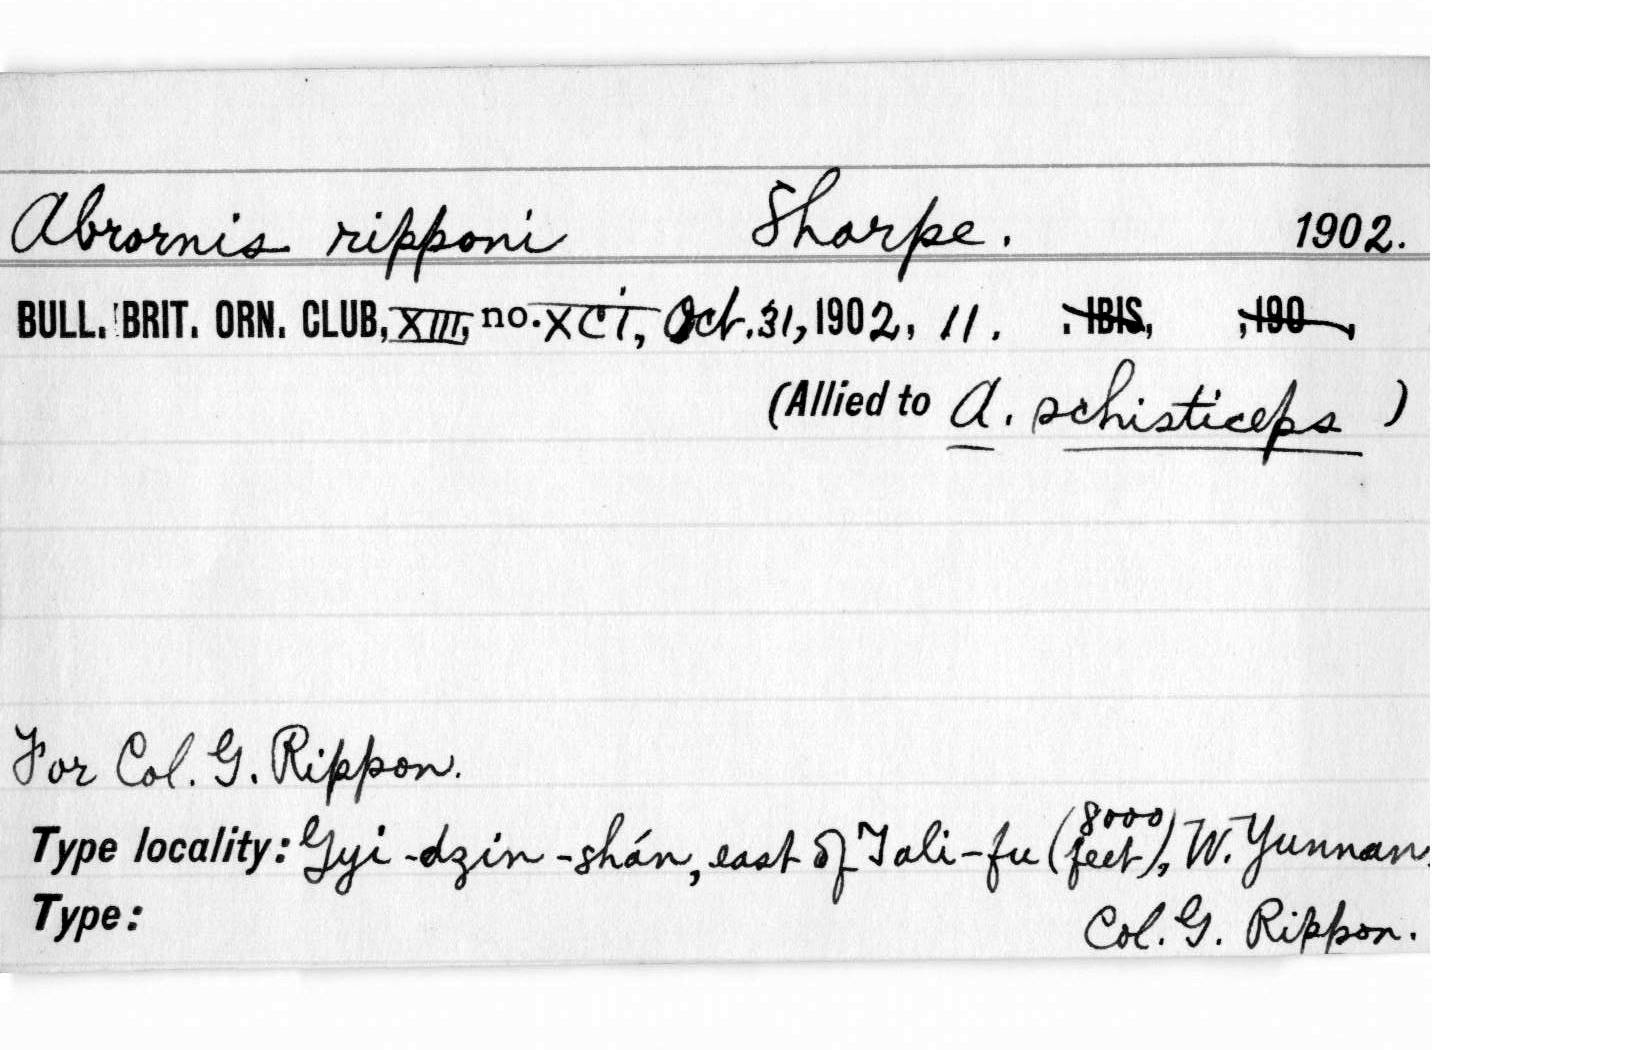 Abrornis ripponi Sharpe. 1902.
BULL. BRIT. ORN. CLUB, XIII, no. XCI, Oct. 31, 1902, 11. . IBIS, , 190 ,
(Allied to A. schisticeps )
For Col. G. Rippon.
Type locality: Gyi-dzin-shán, east of Tali-fu (8000 feet), W. Yunnan.
Type: Col. G. Rippon.